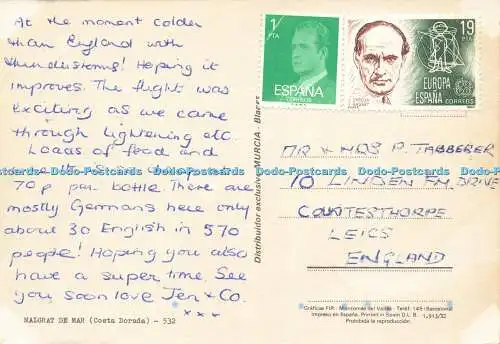 At the moment colder
than England with
thunderstorms! Hoping it
improves. The flight was
exciting as we came
through lightening etc.
Loads of food and
70p per bottle. There are
mostly Germans here only
about 30 English in 570
people! Hoping you also
have a super time. See
you soon love Jen & Co.
x x x
MALGRAT DE MAR (Costa Dorada) - 532
Distribuidor exclusivo MURCIA - Blanes
1
PTA
ESPAÑA
CORREOS
19
PTA
EUROPA
ESPAÑA
CORREOS
MR & MRS P. TABBERER
10 LINDEN FM. DRIVE
COUNTESTHORPE
LEICS
ENGLAND
Impreso en España. Printed in Spain
Prohibida la reproducción.